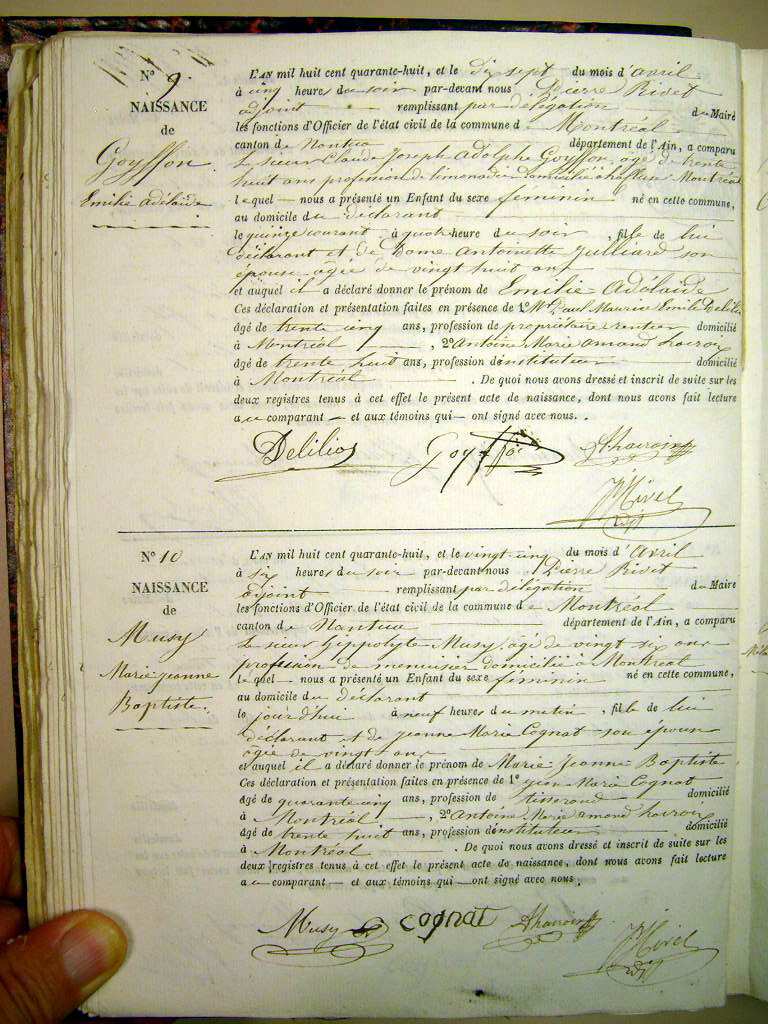 N° 9
NAISSANCE
de
Goyffon
Emilie Adélaïde
L'AN mil huit cent quarante-huit, et le dix sept du mois d'avril
à cinq heures du soir par-devant nous Pierre Rivet
adjoint remplissant par délégation du Maire
les fonctions d'Officier de l'état civil de la commune de Montréal
canton de Nantua département de l'Ain, a comparu
Le sieur Claude Joseph Adolphe Goyffon, agé de trente
huit ans profession de limonadier Domicilié à Montréal
lequel — nous a présenté un Enfant du sexe féminin né en cette commune,
au domicile du Déclarant
le quinze courant à quatre heure du soir, fille de lui
déclarant et de Dame Antoinette Julliard son
épouse agée de vingt huit ans
et auquel il a déclaré donner le prénom de Emilie-Adélaïde
Ces déclaration et présentation faites en présence de 1° Mr Paul Maurice Emile Delilia
âgé de trente cinq ans, profession de propriétaire rentier domicilié
à Montréal, 2° Antoine Marie amand
âgé de trente huit ans, profession d'instituteur domicilié
à Montréal. De quoi nous avons dressé et inscrit de suite sur les
deux registres tenus à cet effet le présent acte de naissance, dont nous avons fait lecture
au comparant — et aux témoins qui — ont signé avec nous.
Delilia Goyffon
JRivet
N° 10
NAISSANCE
de
Musy
Marie Jeanne
Baptiste
L'AN mil huit cent quarante-huit, et le vingt cinq du mois d'avril
à six heures du soir par-devant nous Pierre Rivet
adjoint remplissant par délégation du Maire
les fonctions d'Officier de l'état civil de la commune de Montréal
canton de Nantua département de l'Ain, a comparu
Le sieur hippolyte Musy, agé de vingt six ans
profession de menuisier domicilié à Montréal
lequel — nous a présenté un Enfant du sexe féminin né en cette commune,
au domicile du déclarant
le jourd'hui à neuf heures du matin, fille de lui
déclarant et de jeanne Marie Cognat son épouse
agée de vingt ans
et auquel il a déclaré donner le prénom de Marie-Jeanne-Baptiste
Ces déclaration et présentation faites en présence de 1° jean Marie Cognat
âgé de quarante cinq ans, profession de tisserand domicilié
à Montréal, 2° Antoine Marie amand
âgé de trente huit ans, profession d'instituteur domicilié
à Montréal. De quoi nous avons dressé et inscrit de suite sur les
deux registres tenus à cet effet le présent acte de naissance, dont nous avons fait lecture
au comparant — et aux témoins qui — ont signé avec nous.
Musy cognat
JRivet